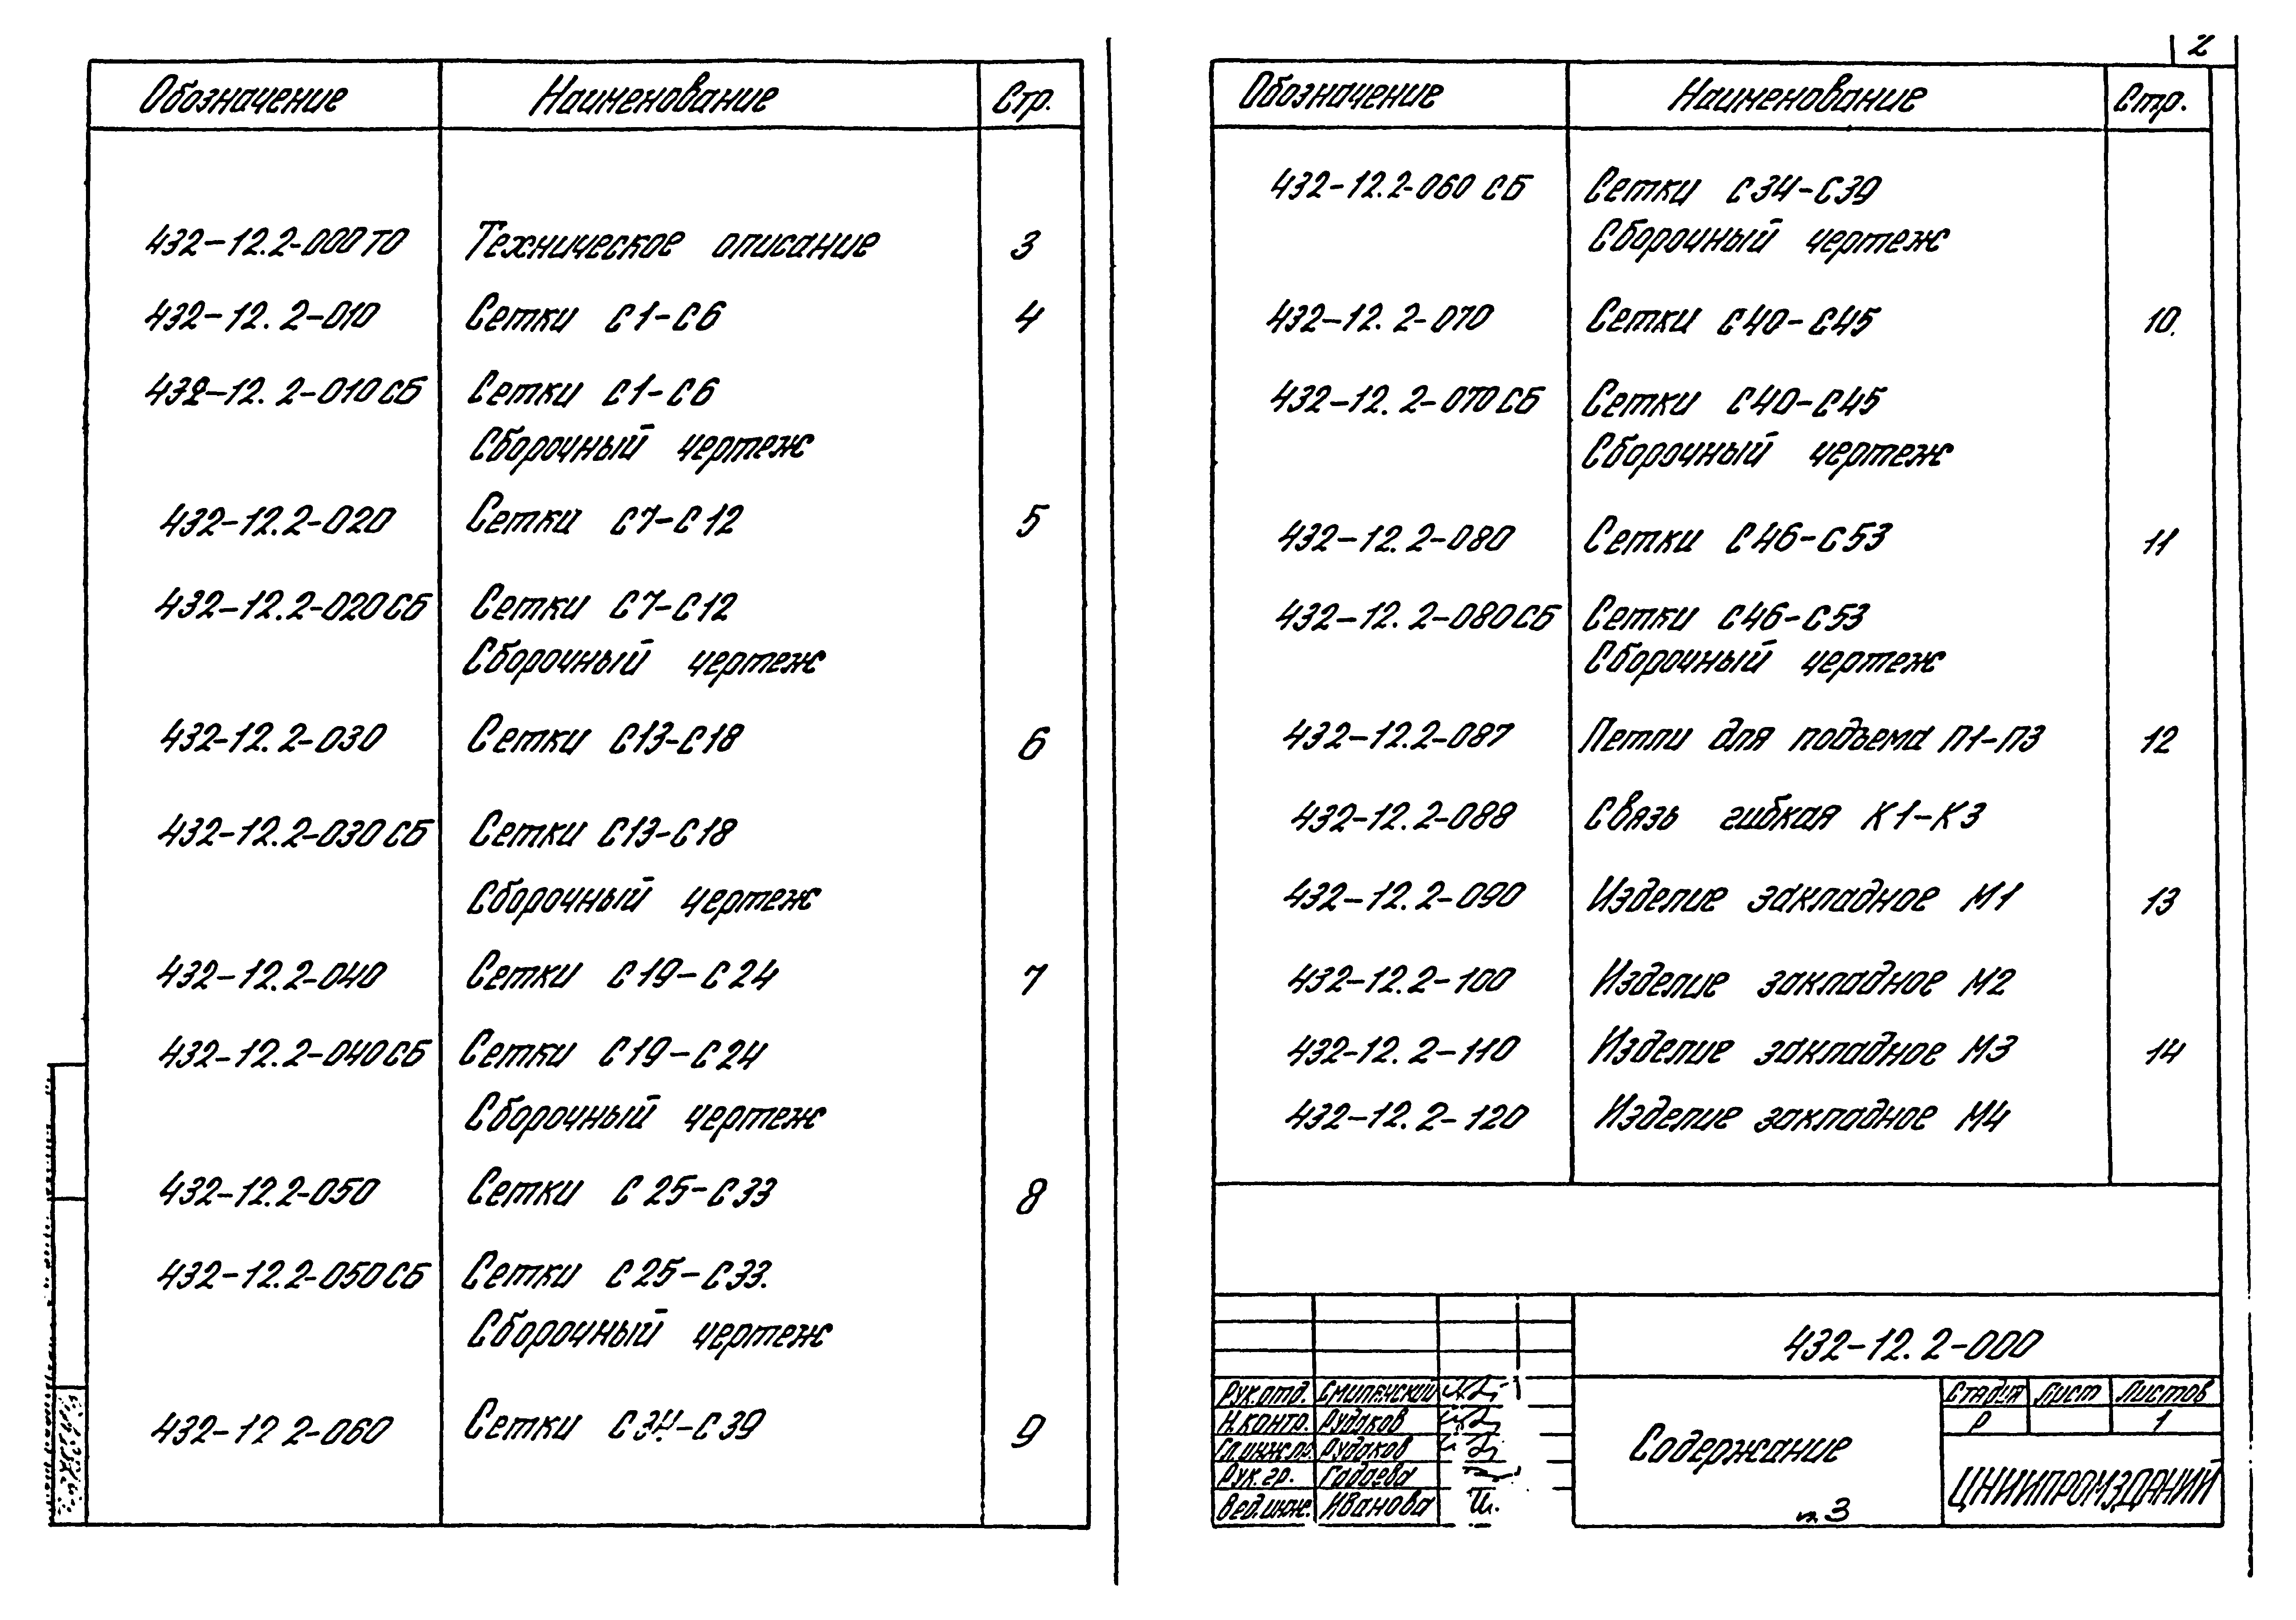 2
Обозначение Наименование Стр.
432-12.2-000 ТО Техническое описание 3
432-12.2-010 Сетки С1-С6 4
432-12.2-010 СБ Сетки С1-С6
Сборочный чертеж
432-12.2-020 Сетки С7-С12 5
432-12.2-020 СБ Сетки С7-С12
Сборочный чертеж
432-12.2-030 Сетки С13-С18 6
432-12.2-030 СБ Сетки С13-С18
Сборочный чертеж
432-12.2-040 Сетки С19-С24 7
432-12.2-040 СБ Сетки С19-С24
Сборочный чертеж
432-12.2-050 Сетки С25-С33 8
432-12.2-050 СБ Сетки С25-С33.
Сборочный чертеж
432-12 2-060 Сетки С34-С39 9
Обозначение Наименование Стр.
432-12.2-060 СБ Сетки С34-С39
Сборочный чертеж
432-12.2-070 Сетки С40-С45 10
432-12.2-070 СБ Сетки С40-С45
Сборочный чертеж
432-12.2-080 Сетки С46-С53 11
432-12.2-080 СБ Сетки С46-С53
Сборочный чертеж
432-12.2-087 Петли для подъема П1-П3 12
432-12.2-088 Связь гибкая К1-К3
432-12.2-090 Изделие закладное М1 13
432-12.2-100 Изделие закладное М2
432-12.2-110 Изделие закладное М3 14
432-12.2-120 Изделие закладное М4
432-12.2-000
Рук.отд. Смилянский
Н.контр. Рудаков
Гл.инж.пр. Рудаков
Рук.гр. Гадаева
Вед.инж. Иванова
Содержание
Стадия Лист Листов
Р 1
ЦНИИПРОМЗДАНИЙ